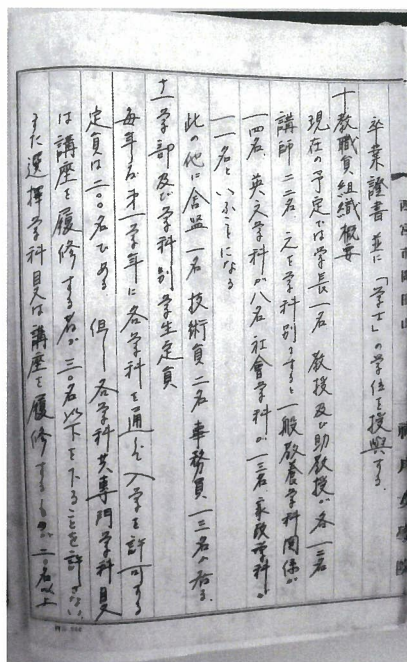 卒業證書並に「学士」の学位を授與する、
十 教職員組織概要
現在の予定では学長一名 教授及び助教授が各一三名
講師 二二名、之を学科別にすると一般教養学科関係が
一四名、英文学科が八名社會学科が一三名、家政学科が
一一名といふことになる
此の他に舎監一名 技術員二名 事務員一三名が居る、
十一 学部及び学科別学生定員
毎年度第一学年に各学科を通じ入学を許可する
定員は二〇〇名である 但し各学科共専門学科目又
は講座を履修する者が三〇名以下を下ることを許さない、
また選擇学科目又は講座を履修するものが二〇名以上
西宮市岡田山
神戸女学院